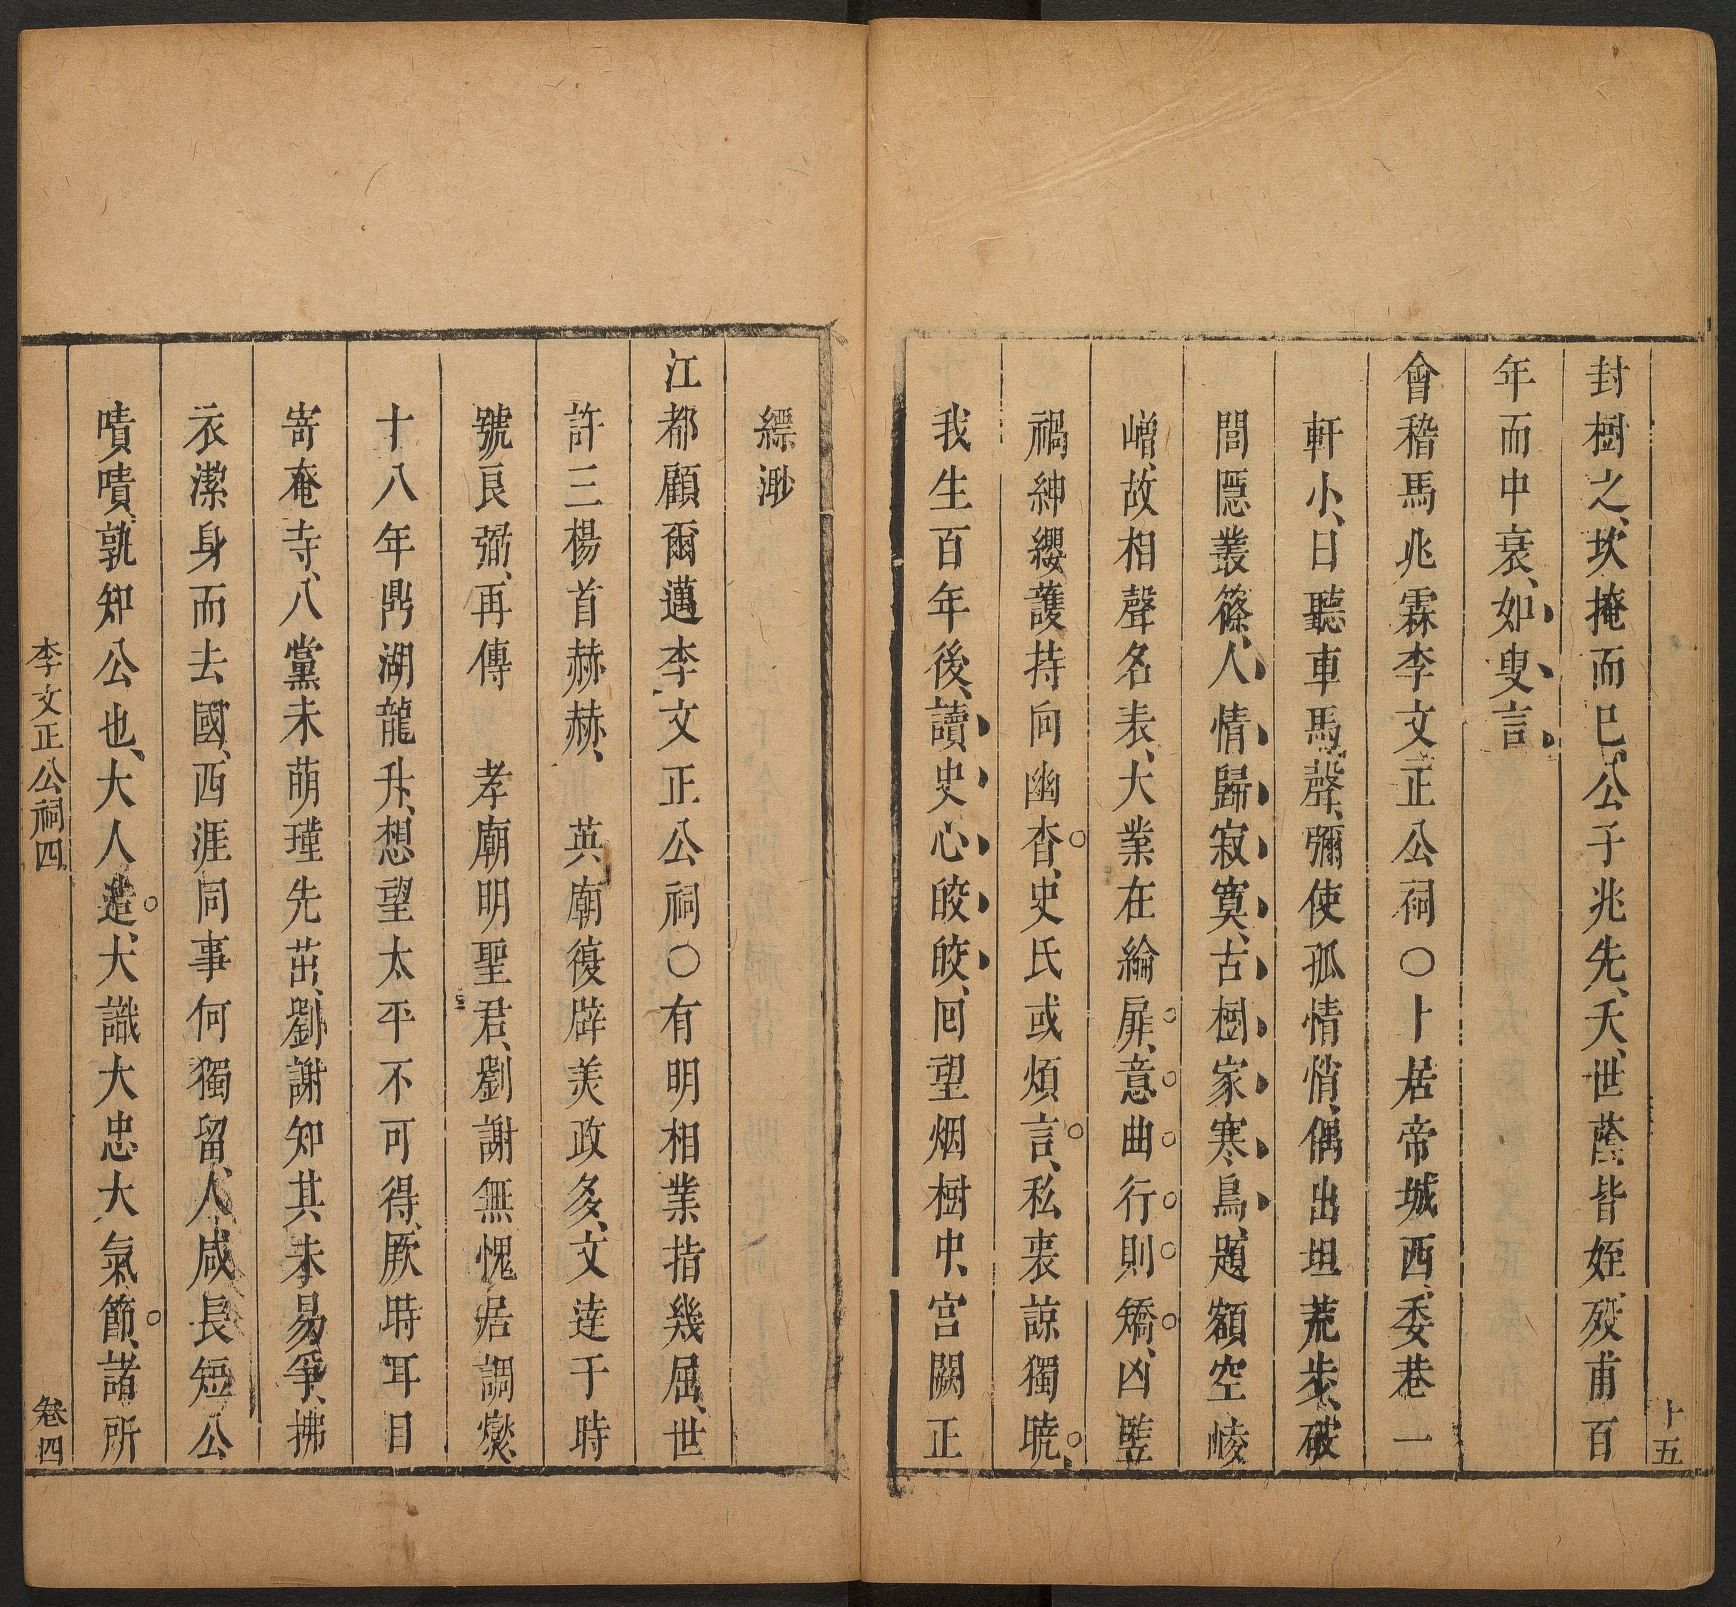 十五
封樹之、坎掩而已、公子兆先、夭、世蔭皆姪、歿甫百
年而中衰、如叟言、
會稽馬兆霖李文正公祠○卜居帝城西、委巷一
軒小、日聽車馬聲、彌使孤情悄、偶出坦荒步、破
閭隱叢篠、人情歸寂寞、古樹家寒鳥、題額空崚
嶒、故相聲名表、大業在綸扉、意曲行則矯、凶豎
禍紳纓、護持向幽杳、史氏或煩言、私衷諒獨曉、
我生百年後、讀史心皎皎、回望烟樹中、宮闕正
縹渺
江都顧爾邁李文正公祠○有明相業指幾屈、世
許三楊首赫赫、 英廟復辟美政多、文逹于時
號良弼、再傳 孝廟明聖君、劉謝無愧居調燮
十八年鼎湖龍升、想望太平不可得、厥時耳目
寄奄寺、八黨未萌瑾先茁、劉謝知其未易爭、拂
衣潔身而去國、西涯同事何獨留、人咸長短公
嘖嘖、孰知公也、大人䢔、大識大忠大氣節、諸所
李文正公祠四
卷四